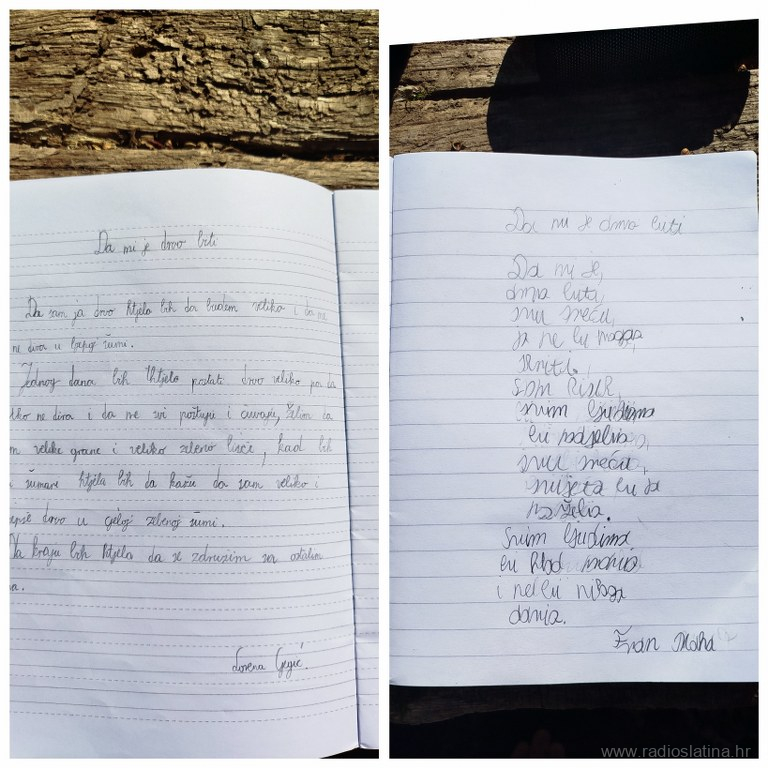 Da mi je drvo biti
Da sam ja drvo htjela bih da budem veliko i da me
ne dira u lijepoj šumi.
Jednog dana bih htjela postati drvo veliko pa da
tko ne dira i da me svi poštuju i čuvaju, želim da
m velike grane i veliko zeleno lišće, kad bih
šumare htjela bih da kažu da sam veliko i
ljepše drvo u cijeloj zelenoj šumi.
Na kraju bih htjela da se združim sa ostalim
a.
Lorena
Da mi je drvo biti
Da mi je,
drvo biti,
svu sreću,
ja ne bi mogao
skriti.
svim ljudima
bi podjelio,
svu sreću,
svijeta bi ja
želio.
svim ljudima
bi hlad
i ne bi nikoga
www.radioslatina.hr